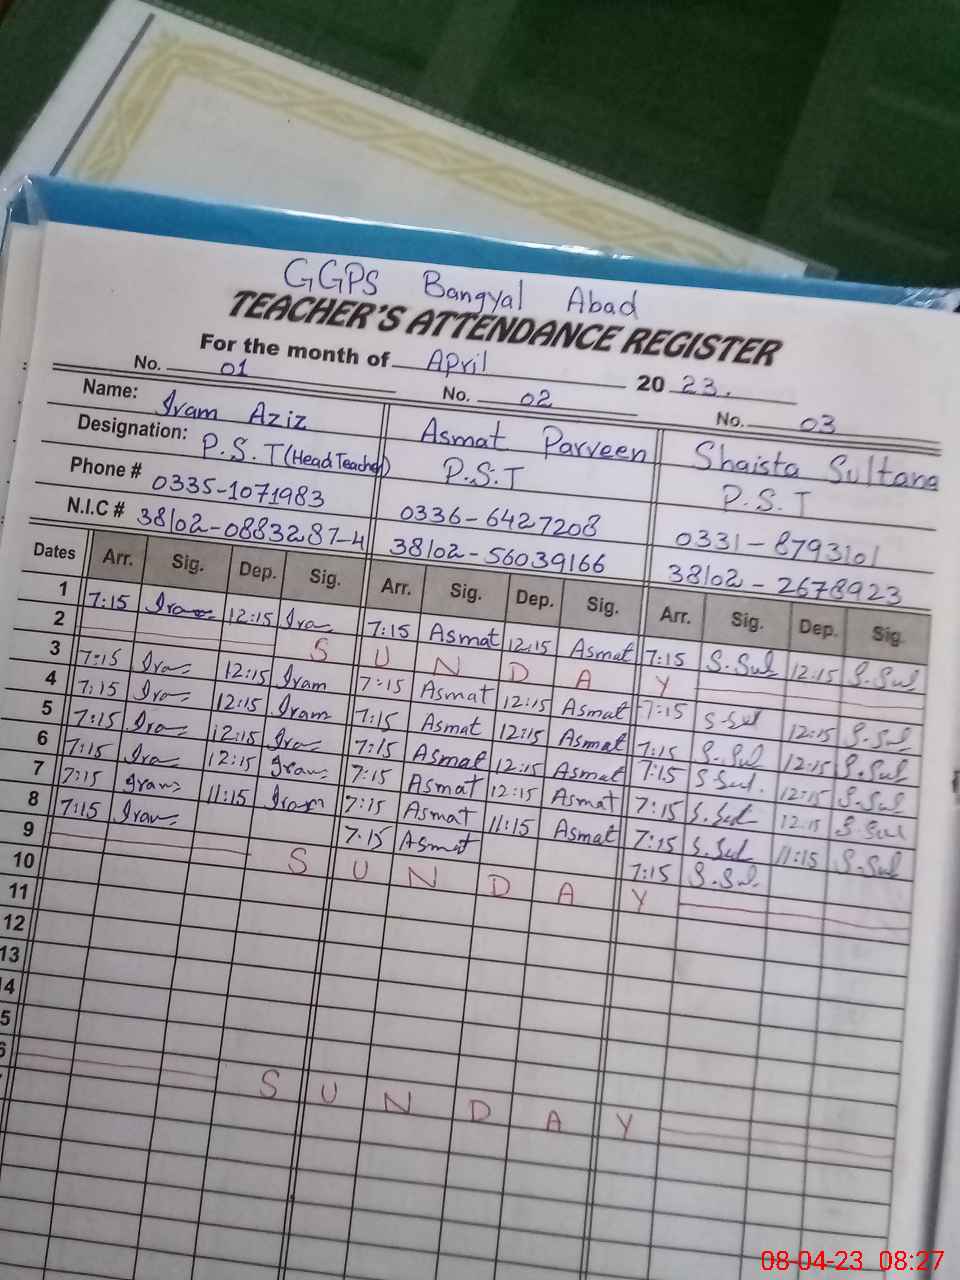 GGPS Bangyal Abad
TEACHER'S ATTENDANCE REGISTER
For the month of April 2023.
No. 01 No. 02 No. 03
Name: Iram Aziz Asmat Parveen Shaista Sultana
Designation: P.S.T (Head Teacher) P.S.T P.S.T
Phone # 0335-1071983 0336-6427208 0331-8793101
N.I.C # 38102-0883287-4 38102-56039166 38102-2678923
Dates Arr. Sig. Dep. Sig. Arr. Sig. Dep. Sig. Arr. Sig. Dep. Sig.
1 7:15 Iram 12:15 Iram 7:15 Asmat 12:15 Asmat 7:15 S.Sul 12:15 S.Sul
2 S U N D A Y
3 7:15 Iram 12:15 Iram 7:15 Asmat 12:15 Asmat 7:15 S.Sul 12:15 S.Sul
4 7:15 Iram 12:15 Iram 7:15 Asmat 12:15 Asmat 7:15 S.Sul 12:15 S.Sul
5 7:15 Iram 12:15 Iram 7:15 Asmat 12:15 Asmat 7:15 S.Sul. 12:15 S.Sul
6 7:15 Iram 12:15 Iram 7:15 Asmat 12:15 Asmat 7:15 S.Sul 12:15 S.Sul
7 7:15 Iram 11:15 Iram 7:15 Asmat 11:15 Asmat 7:15 S.Sul 11:15 S.Sul
8 7:15 Iram 7:15 Asmat 7:15 S.Sul.
9 S U N D A Y
10
11
12
13
4
5
6 S U N D A Y
08-04-23 08:27